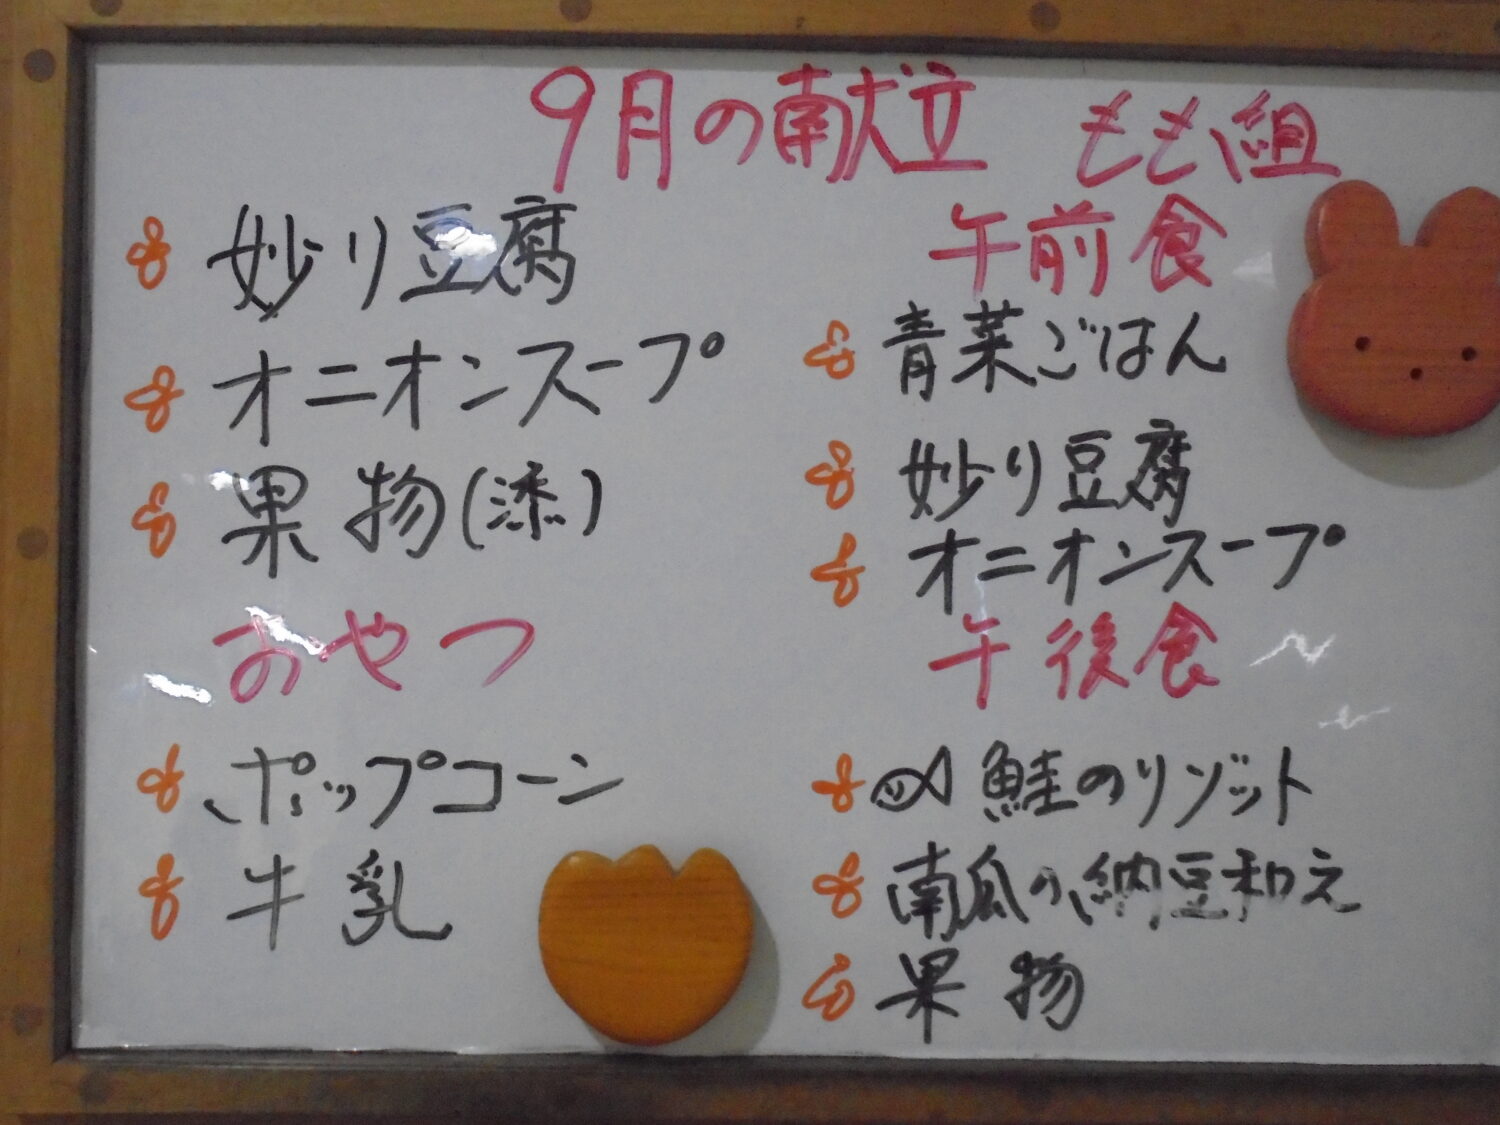 9月の献立 もも組
妙り豆腐
オニオンスープ
果物
おやつ
ポップコーン
牛乳
午前食
青菜ごはん
妙り豆腐
オニオンスープ
午後食
鮭のリゾット
南瓜の納豆和え
果物